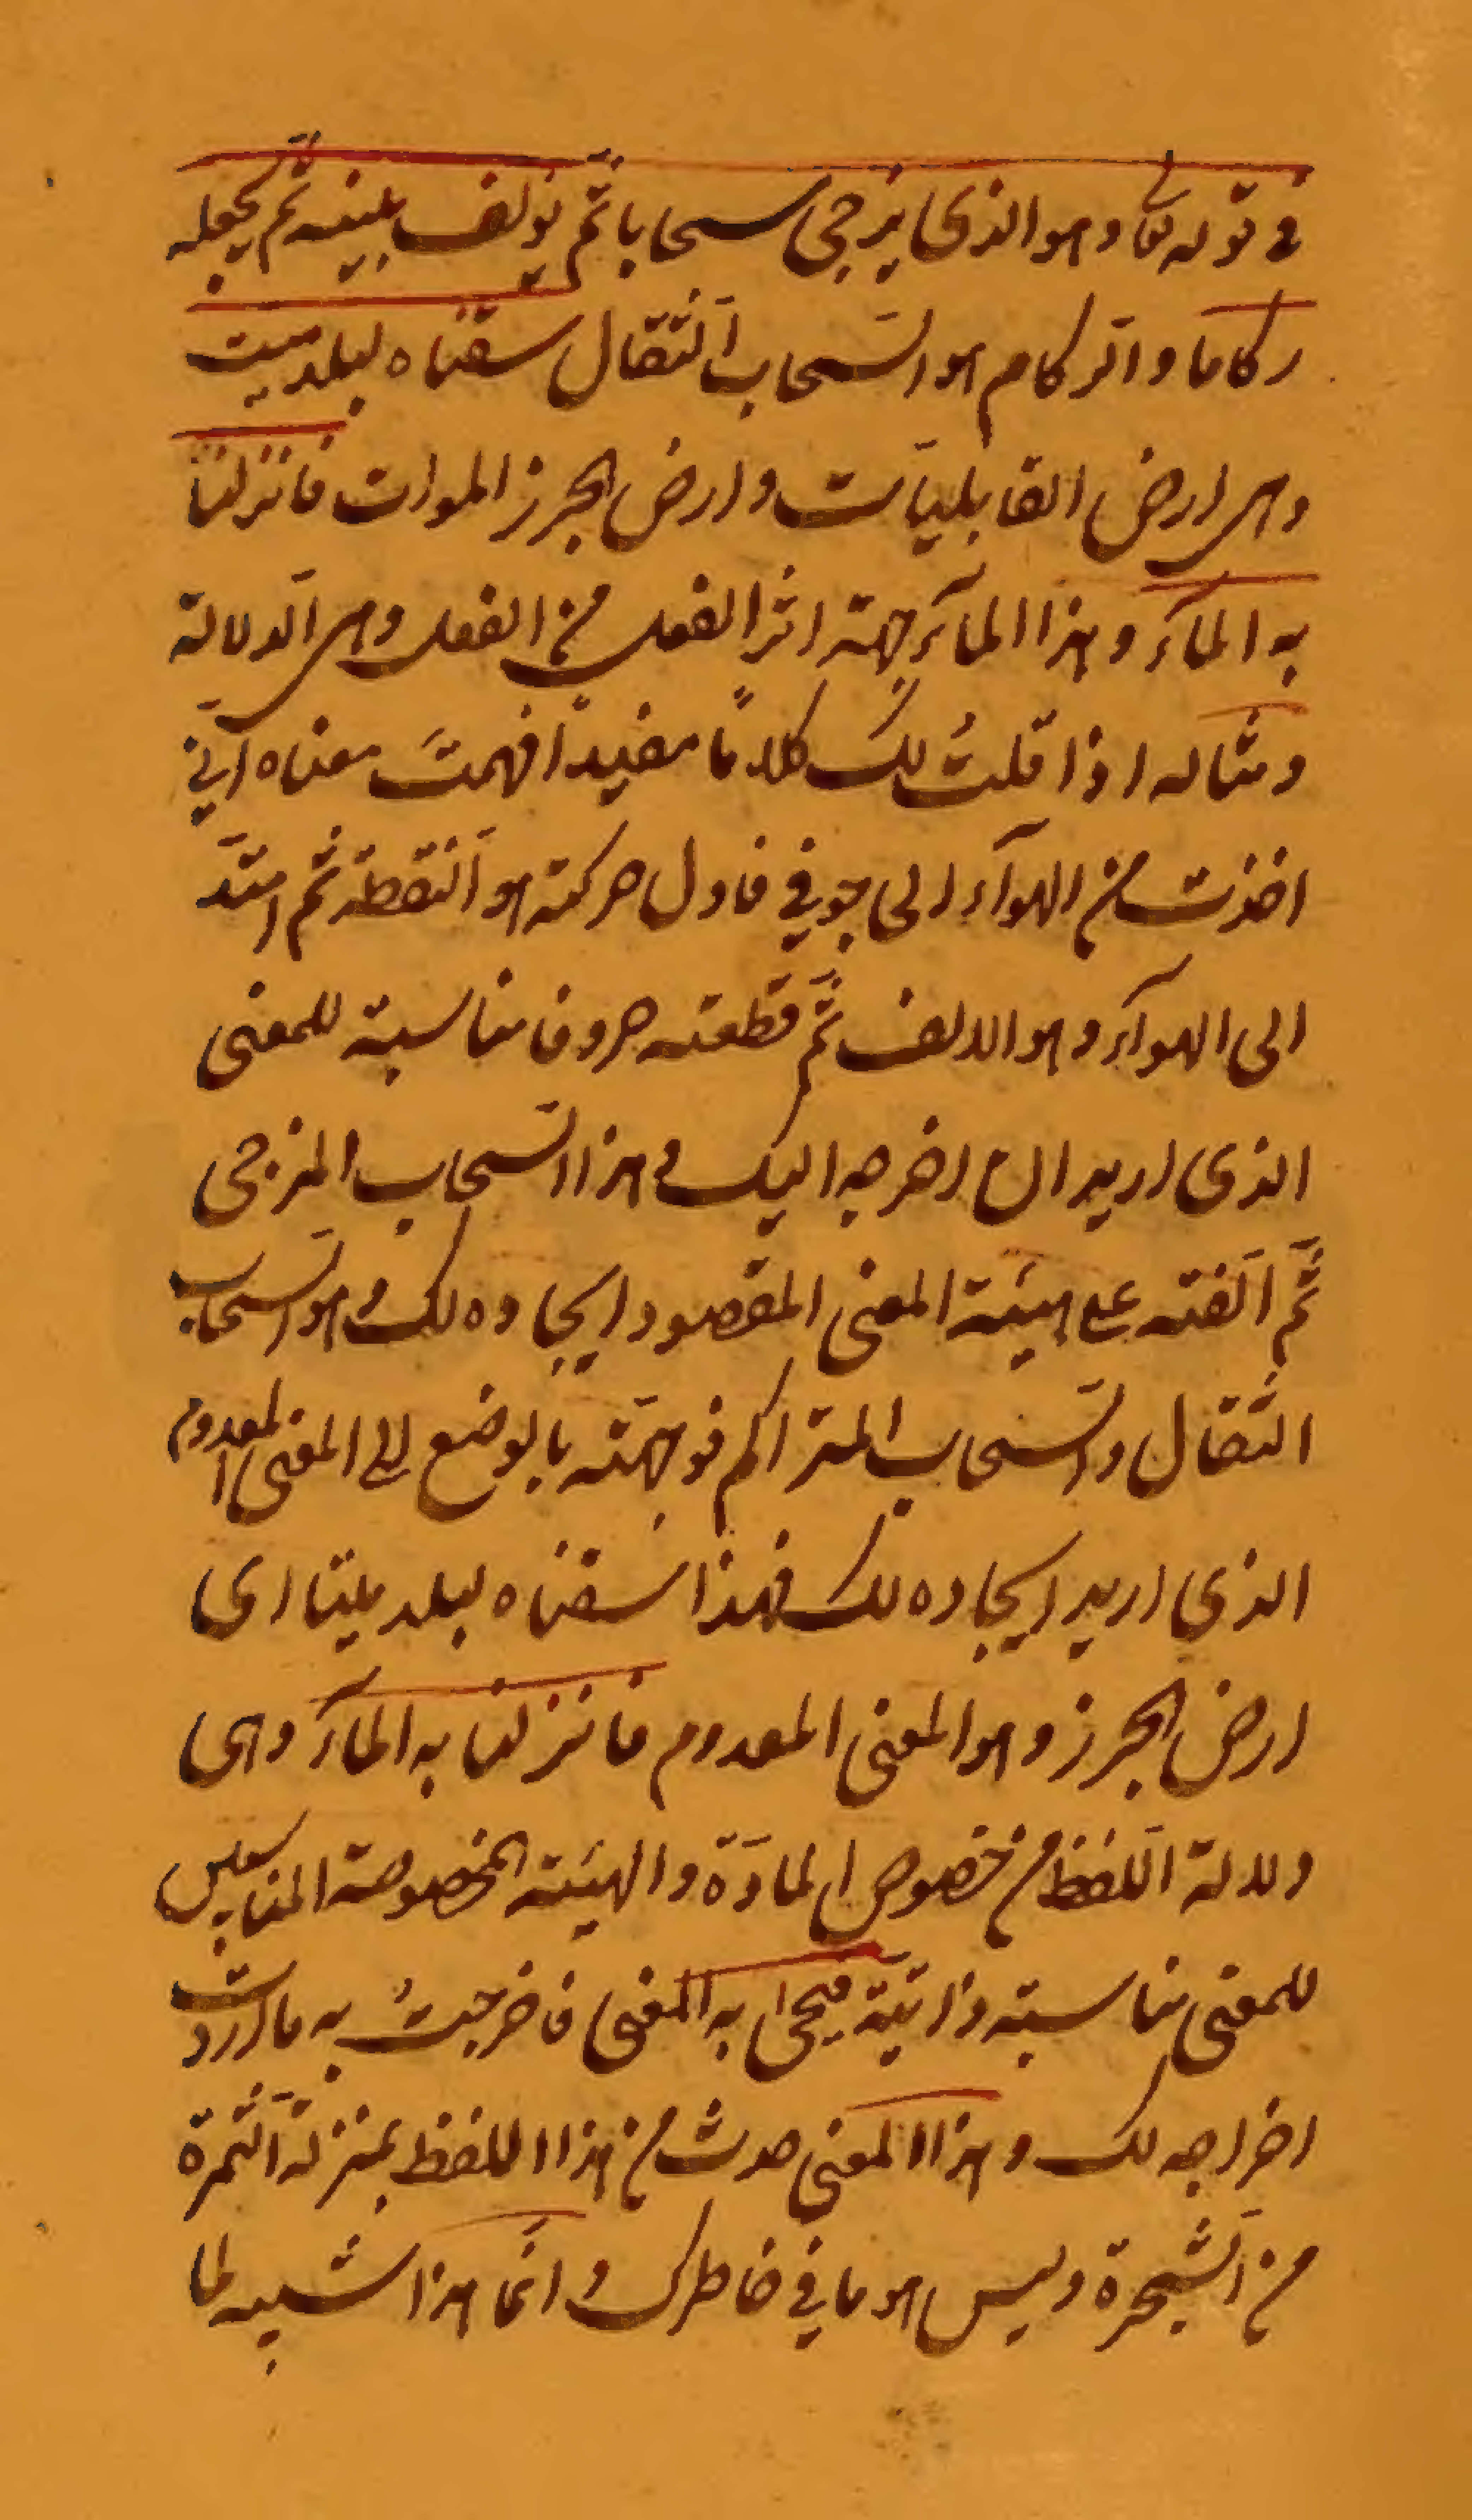 في قوله تعا وهو الذي يزجي سحابا ثم يؤلف بينه ثم يجعله
ركاما والركام هو السّحاب الثّقال سقناه لبلد ميت
وهي ارض القابليّات وارض الجرز الموات فانزلنا
به المآء وهذا المآء جهة اثر الفعل من الفعل وهي الدلالة
ومثاله اذا قلتُ لكَ كلامًا مفيدًا فهمتَ معناه انّي
اخذت من الهوآء الى جوفي فاول حركته هو النّقطة ثم امتدّ
الى الهوآء وهو الالف ثمّ قطعته حروفا مناسبة للمعنى
الذي اريد ان اخرجه اليك وهذا السّحاب المزجى
ثمّ الّفته على هيئة المعنى المقصود ايجاده لك وهو السّحاب
الثّقال والسّحاب المتراكم فوجّهته بالوضع الى المعنى المعدوم
الذي اريد ايجاده لك فهذا سقناه لبلد ميتا اى
ارض الجرز وهو المعنى المعدوم فانزلنا به المآء وهى
دلالة اللّفظ من خصوص المادّة والهيئة المخصوصة المناسبين
للمعنى مناسبة ذاتيّة فيحيى به المعنى فاخرجتُ به ما اردت
اخراجه لك وهذا المعنى حدث من هذا اللفظ بمنزلة الثّمرة
من الشّجرة وليس هو ما في خاطرك وانّما هذا شبيه لما